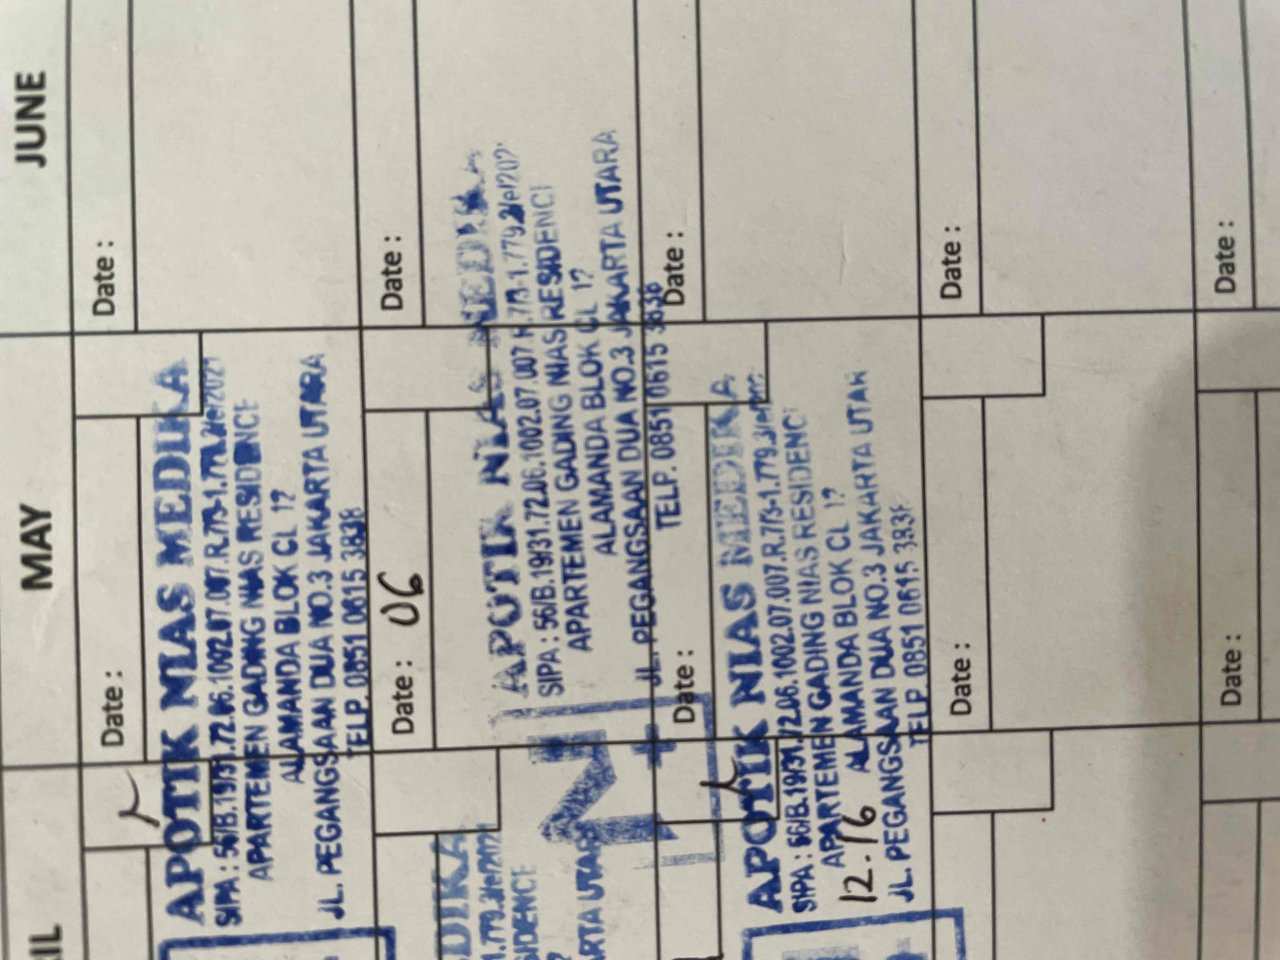 IL
MAY
JUNE
Date :
Date :
APOTIK NIAS MEDIKA
SIPA : 56/B.19/31.72.06.1002.07.007.R.773-1.779.3/e/2021
APARTEMEN GADING NIAS RESIDENCE
ALAMANDA BLOK CL 17
JL. PEGANGSAAN DUA NO.3 JAKARTA UTARA
TELP. 0851 0615 3838
Date : 06
Date :
DIKA
1.779.3/e/2021
SIDENCE
RTA UTARA
N
APOTIK NIAS MEDIKA
SIPA : 56/B.19/31.72.06.1002.07.007.R.773-1.779.3/e/202
APARTEMEN GADING NIAS RESIDENCE
ALAMANDA BLOK CL 17
JL. PEGANGSAAN DUA NO.3 JAKARTA UTARA
TELP. 0851 0615 3838
Date :
Date :
APOTIK NIAS MEDIKA
SIPA : 56/B.19/31.72.06.1002.07.007.R.773-1.779.3/e/
APARTEMEN GADING NIAS RESIDENC
ALAMANDA BLOK CL 17
12.16
JL. PEGANGSAAN DUA NO.3 JAKARTA UTAR
TELP. 0851 0615 3838
Date :
Date :
Date :
Date :